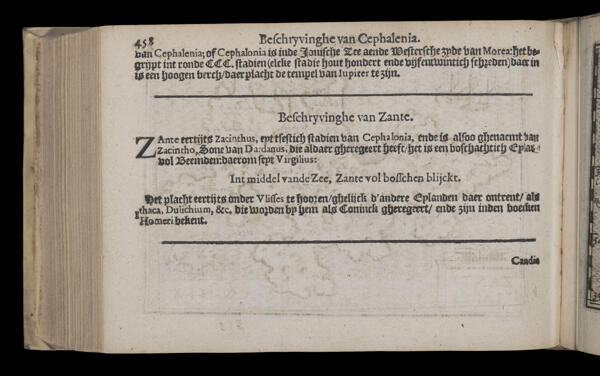 458
Beschryvinghe van Cephalenia.
van Cephalenia; of Cephalonia is inde Jonische Zee aende Westersche zyde van Morea: het be-
grijpt int ronde CCC. stadien (elcke stadie hout hondert ende vijfentwintich schreden) daer in
is een hoogen berch/ daer placht de tempel van Iupiter te zijn.
Beschryvinghe van Zante.
ZAnte eertijts Zacinthus, eyt tsestich stadien van Cephalonia, ende is alsoo ghenaemt van
Zacintho, Sone van Dardanus, die aldaer gheregeert heeft/ het is een boschachtich Eylan
vol Beemden: daerom seyt Virgilius:
Int middel vande Zee, Zante vol bosschen blijckt.
Het placht eertijts onder Vlisses te hooren/ ghelijck d'andere Eylanden daer ontrent/ als
Ithaca, Dulichium, &c. die worden by hem als Coninck gheregeert/ ende zijn inden boecken
Homeri bekent.
Candia